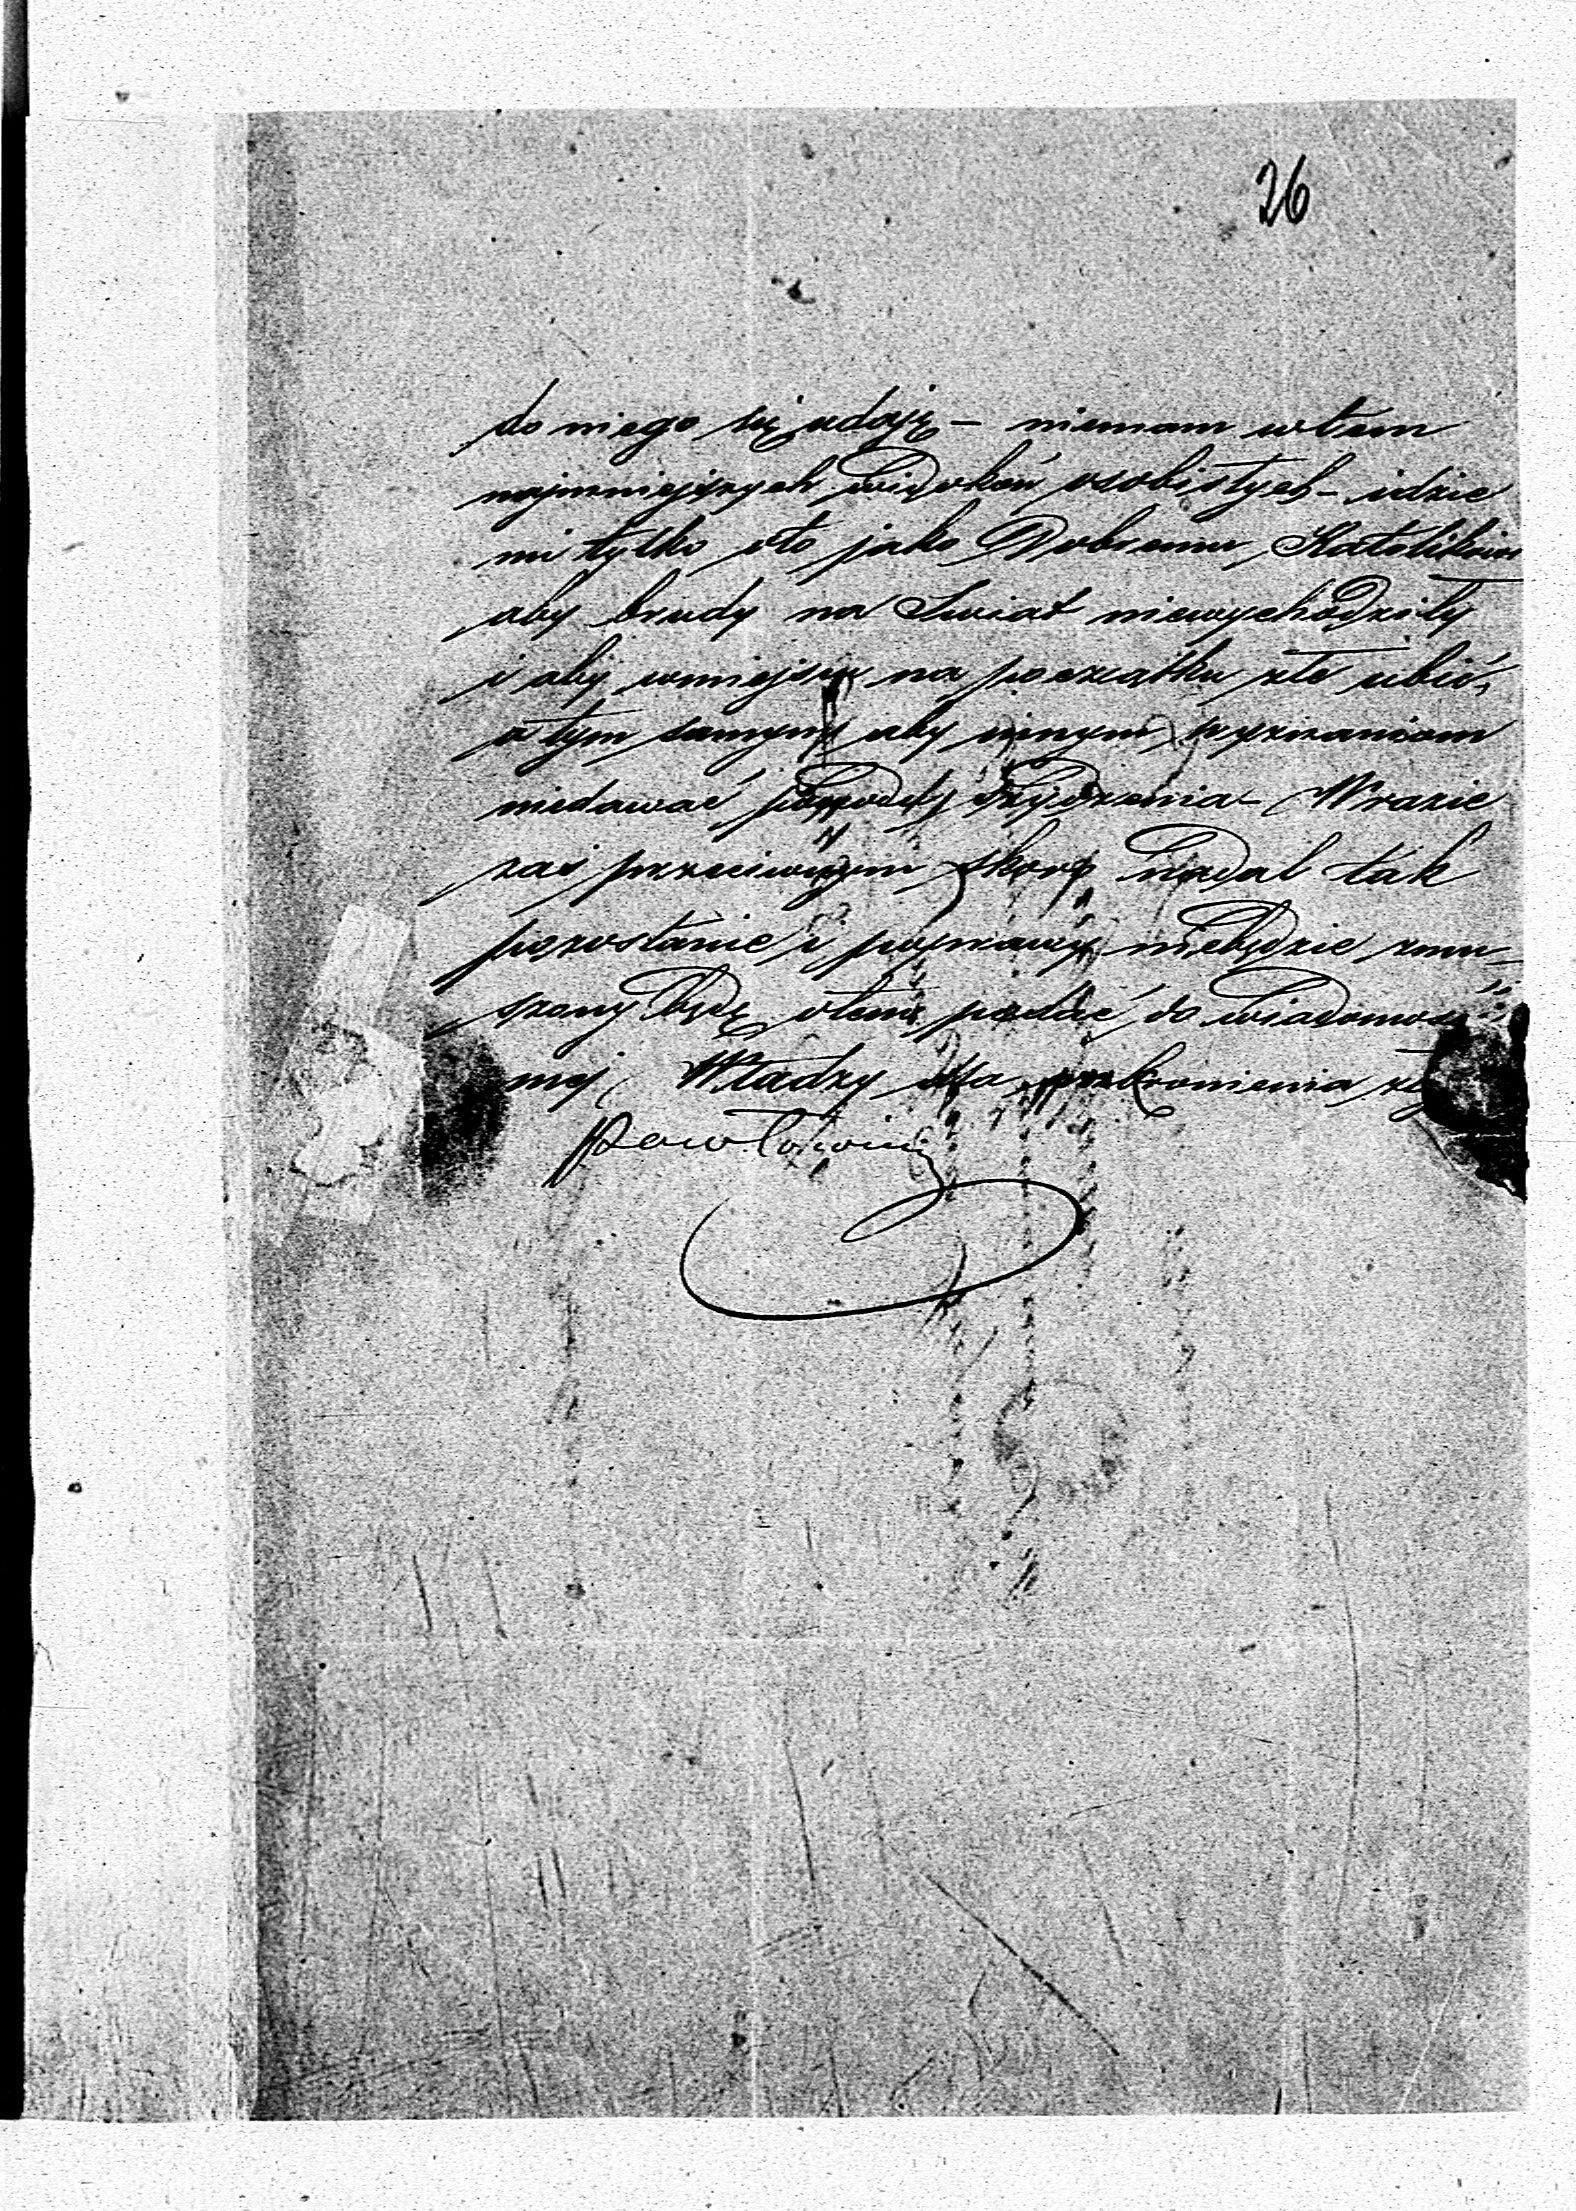 26
do niego się udaję – niemam wtem
najmniejszych widoków osobistych – idzie
mi tylko oto jako Dobremu Katolikowi
aby brudy na Swiat niewychodziły
i aby wmiejscu na początku złe ubić,
a tym samym aby innym wyznaniom
niedawać powodu szydzenia – Wrazie
zaś przeciwnym skoro nadal tak
pozostanie i poprawy niebędzie zmu-
szony będę otem podać do wiadomos
mej Władzy dla